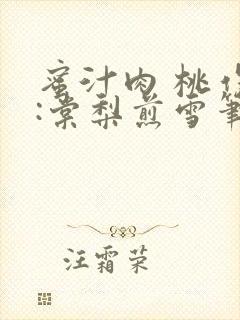 蜜汁肉桃作
:棠梨煎雪筆
汪霜荣